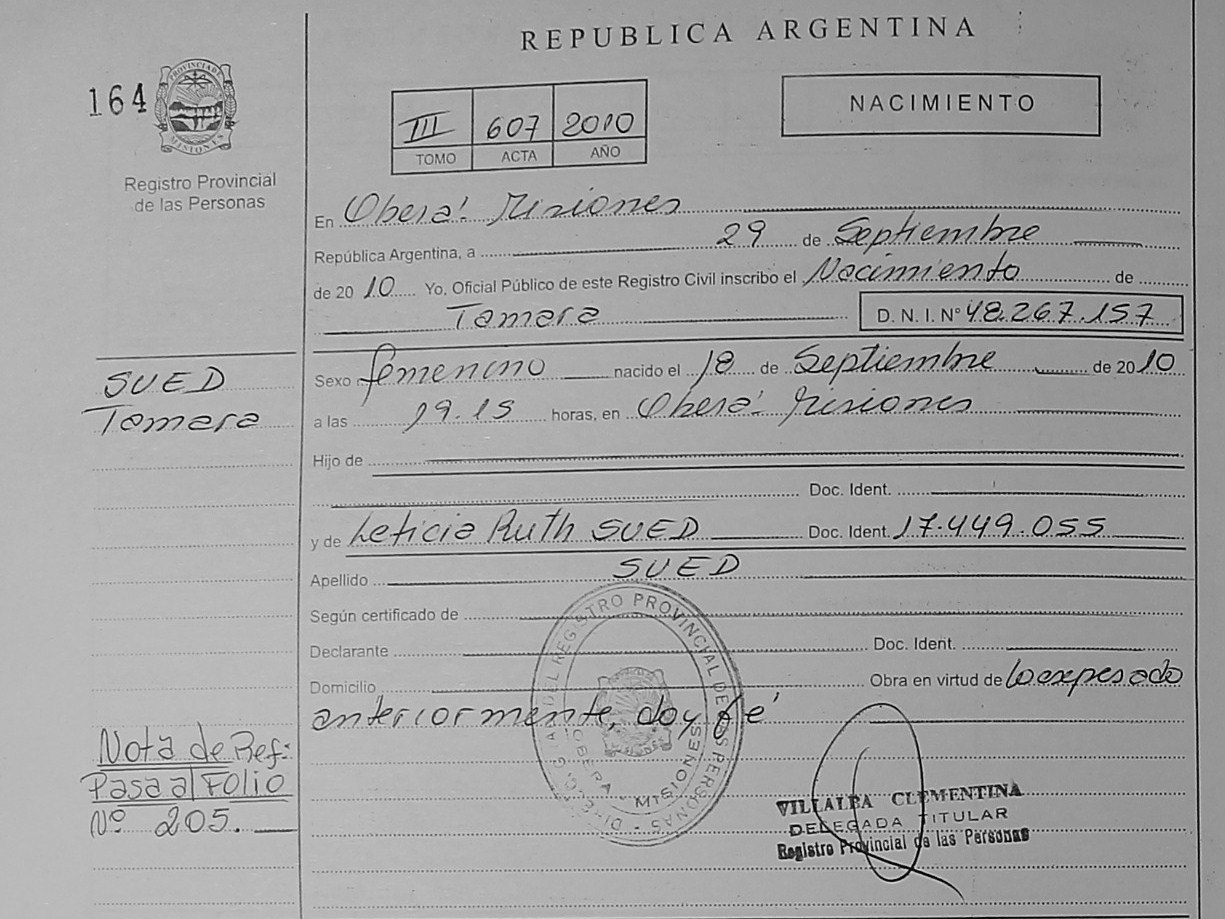 REPUBLICA ARGENTINA
164
PROVINCIA DE
MISIONES
Registro Provincial
de las Personas
III 607 2010
TOMO ACTA AÑO
NACIMIENTO
En Oberá Misiones
República Argentina, a 29 de Septiembre
de 2010 Yo, Oficial Público de este Registro Civil inscribo el Nacimiento de
Tamara D. N. I. Nº 48.267.157
SUED
Tamara
Sexo femenino nacido el 18 de Septiembre de 2010
a las 19.15 horas, en Oberá Misiones
Hijo de
Doc. Ident.
y de Leticia Ruth SUED Doc. Ident. 17.449.055
Apellido SUED
Según certificado de
Declarante Doc. Ident.
Domicilio Obra en virtud de lo expesado
anteriormente, doy fé
Nota de Ref:
Pasa al FOLIO
Nº 205.
DEL REGISTRO PROVINCIAL DE LAS PERSONAS
OBERA - MISIONES
VILLALBA CLEMENTINA
DELEGADA TITULAR
Registro Provincial de las Personas